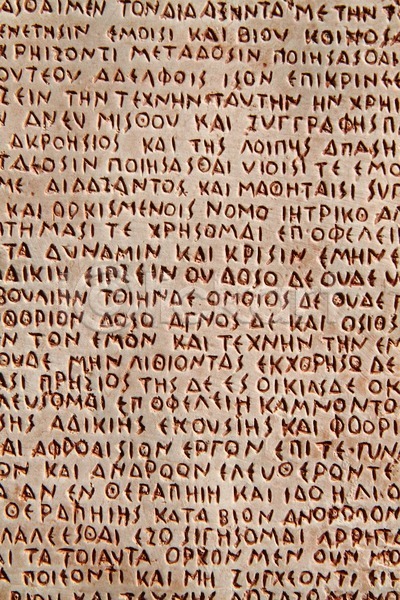 ΑΣΟΔΙΜΕΝ ΤΟΝ ΔΙΔΑΞΑΝΤΑ ΜΕ ΤΗΝ Τ
ΕΝΕΤΗΣΙΝ ΕΜΟΙΣΙ ΚΑΙ ΒΙΟΥ ΚΟΙΝΟΣΑ
ΧΡΗΙΖΟΝΤΙ ΜΕΤΑΔΟΣΙΝ ΠΟΙΗΣΑΣΟΑΙ
ΟΥΤΕΟΥ ΑΔΕΛΦΟΙΣ ΙΣΟΝ ΕΠΙΚΡΙΝΕΕ
ΞΕΙΝ ΤΗΝ ΤΕΧΝΗΝ ΤΑΥΤΗΝ ΗΝ ΧΡΗΙ
Ν ΑΝΕΥ ΜΙΣΘΟΥ ΚΑΙ ΞΥΓΓΡΑΦΗΣ Π
ΑΚΡΟΗΣΙΟΣ ΚΑΙ ΤΗΣ ΛΟΙΠΗΣ ΑΠΑΣΗ
ΤΑΔΟΣΙΝ ΠΟΙΗΣΑΣΘΑΙ ΥΙΟΙΣΙ ΤΕ ΕΜΟ
ΜΕ ΔΙΔΑΞΑΝΤΟΣ ΚΑΙ ΜΑΘΗΤΑΙΣΙ ΣΥΓ
ΚΑΙ ΟΡΚΙΣΜΕΝΟΙΣ ΝΟΜΟ ΙΗΤΡΙΚΟ ΑΛ
ΑΙΤΗΜΑΣΙ ΤΕ ΧΡΗΣΟΜΑΙ ΕΠ ΟΦΕΛΕΙΗ
ΤΑ ΔΥΝΑΜΙΝ ΚΑΙ ΚΡΙΣΙΝ ΕΜΗΝ
ΑΔΙΚΙΗ ΕΙΡΞΕΙΝ ΟΥ ΔΟΣΟ ΔΕ ΟΥΔΕ
ΒΟΥΛΙΗΝ ΤΟΙΗΝΔΕ ΟΜΟΙΟΣ ΔΕ ΟΥΔΕ
ΘΟΡΙΟΝ ΔΟΣΟ ΑΓΝΟΣ ΔΕ ΚΑΙ ΟΣΙΟΣ
Ν ΤΟΝ ΕΜΟΝ ΚΑΙ ΤΕΧΝΗΝ ΤΗΝ ΕΜ
ΟΥΔΕ ΜΗΝ ΛΙΘΙΟΝΤΑΣ ΕΚΧΟΡΗΣΟ ΔΕ
ΑΣΙ ΠΡΗΞΙΟΣ ΤΗΣΔΕ ΕΣ ΟΙΚΙΑΣ ΔΕ ΟΚ
ΛΕΥΣΟΜΑΙ ΕΠ ΟΦΕΛΕΙΗ ΚΑΜΝΟΝΤΟ
ΗΣ ΑΔΙΚΙΗΣ ΕΚΟΥΣΙΗΣ ΚΑΙ ΦΘΟΡΙ
ΑΙ ΑΦΡΟΔΙΣΙΟΝ ΕΡΓΟΝ ΕΠΙ ΤΕ ΓΥΝ
ΟΝ ΚΑΙ ΑΝΔΡΟΟΝ ΕΛΕΥΘΕΡΟΝ ΤΕ
Ν ΕΝ ΘΕΡΑΠΗΙΗ ΚΑΙ ΙΔΟ Η
ΘΕΡΑΠΗΙΗΣ ΚΑΤΑ ΒΙΟΝ ΑΝΘΡΟΠΟΝ
ΛΑΛΕΕΣΘΑΙ ΕΞΟ ΣΙΓΗΣΟΜΑΙ ΑΡΡΗΤΑ
ΤΑ ΤΟΙΑΥΤΑ ΟΡΚΟΝ ΜΕΝ ΟΥΝ
Α ΠΟΙΕΟΝΤΙ ΚΑΙ ΜΗ ΞΥΓΧΕΟΝΤΙ ΕΙ